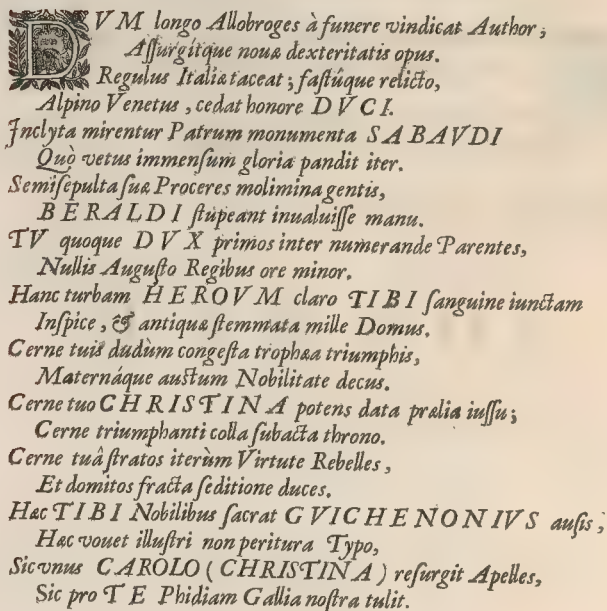 DVM longo Allobroges à funere vindicat Author;
Aſſurgitque nouæ dexteritatis opus.
Regulus Italiæ taceat; faſtúque relicto,
Alpino Venetus, cedat honore DVCI.
Inclyta mirentur Patrum monumenta SABAVDI
Quò vetus immenſum gloria pandit iter.
Semiſepulta ſuæ Proceres molimina gentis,
BERALDI ſtupeant inualuiſſe manu.
TV quoque DVX primos inter numerande Parentes,
Nullis Auguſto Regibus ore minor.
Hanc turbam HEROVM claro TIBI ſanguine iunctam
Inſpice, & antiquæ ſtemmata mille Domus.
Cerne tuis dudùm congeſta trophæa triumphis,
Maternáque auctum Nobilitate decus.
Cerne tuo CHRISTINA potens data prælia iuſſu;
Cerne triumphanti colla ſubacta throno.
Cerne tuâ ſtratos iterùm Virtute Rebelles,
Et domitos fracta ſeditione duces.
Hæc TIBI Nobilibus ſacrat GVICHENONIVS auſis;
Hæc vouet illuſtri non peritura Typo,
Sic vnus CAROLO (CHRISTINA) reſurgit Apelles,
Sic pro TE Phidiam Gallia noſtra tulit.